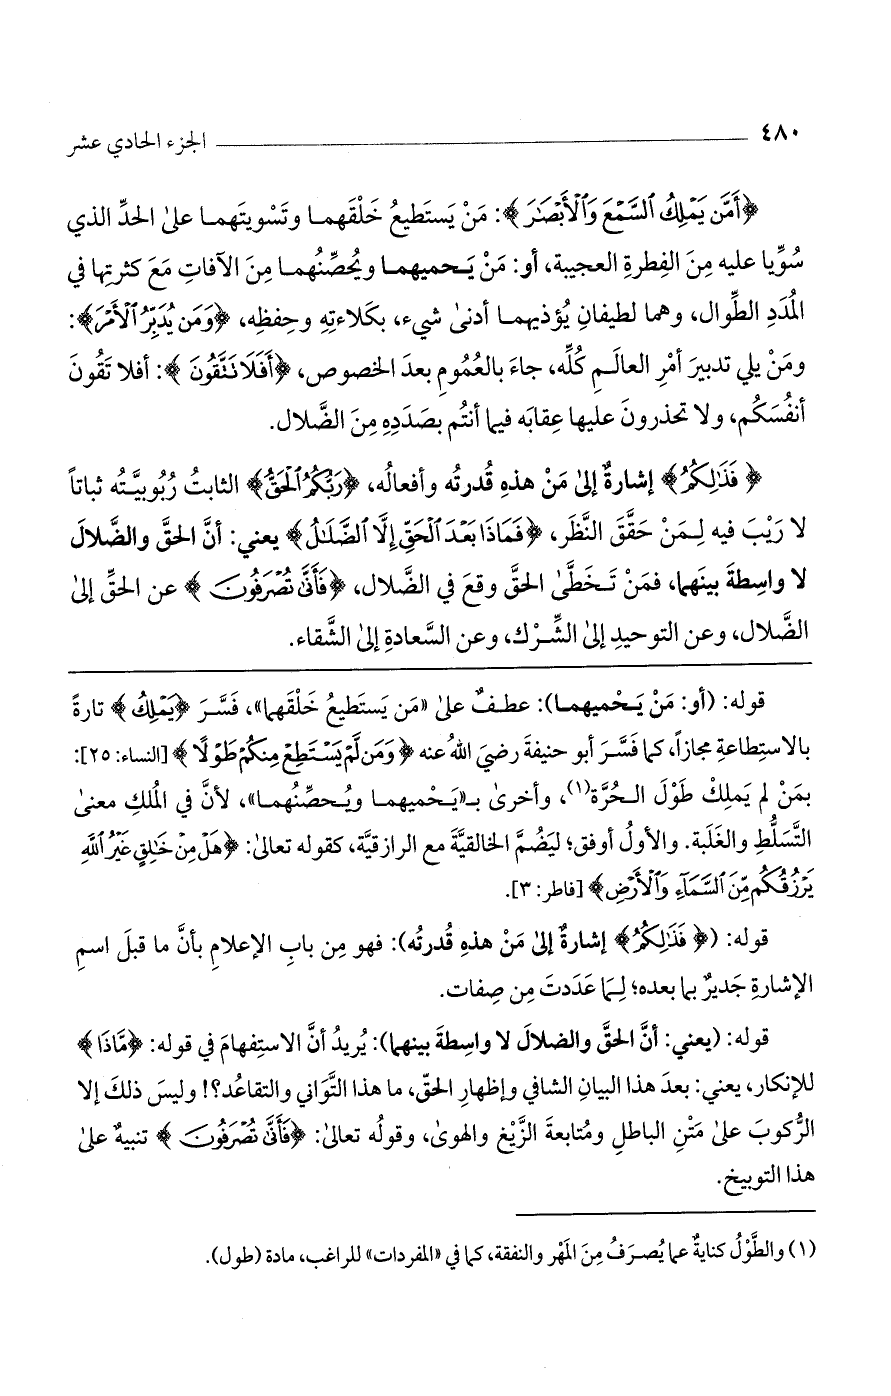 ٤٨٠ الجزء الحادي عشر
﴿أَمَّن يَمْلِكُ ٱلسَّمْعَ وَٱلْأَبْصَٰرَ﴾: مَنْ يَستَطيعُ خَلْقَهما وتَسْويتَهما على الحدِّ الذي
سُوِّيا عليه مِنَ الفِطرةِ العجيبة، أو: مَنْ يَحميهما ويُحصِّنُهما مِنَ الآفاتِ مَعَ كثرتِها في
المُدَدِ الطِّوال، وهما لطيفانِ يُؤذيهما أدنىٰ شيء، بكَلاءتِهِ وحِفظِه، ﴿وَمَن يُدَبِّرُ ٱلْأَمْرَ﴾:
ومَنْ يلي تدبيرَ أمْرِ العالَمِ كُلِّه، جاءَ بالعُمُومِ بعدَ الخصوص، ﴿أَفَلَا نَتَّقُونَ﴾: أفلا تَقُونَ
أنفُسَكُم، ولا تحذرونَ عليها عِقابَه فيما أنتُم بصَدَدِهِ مِنَ الضَّلال.
﴿فَذَٰلِكُمُ﴾ إشارةٌ إلىٰ مَنْ هذهِ قُدرتُه وأفعالُه، ﴿رَبُّكُمُ ٱلْحَقُّ﴾ الثابتُ رُبُوبيَّتُه ثباتاً
لا رَيْبَ فيه لِـمَنْ حَقَّقَ النَّظَر، ﴿فَمَاذَا بَعْدَ ٱلْحَقِّ إِلَّا ٱلضَّلَٰلُ﴾ يعني: أنَّ الحقَّ والضَّلالَ
لا واسِطةَ بينَهما، فمَنْ تَخَطَّىٰ الحقَّ وقعَ في الضَّلال، ﴿فَأَنَّىٰ تُصْرَفُونَ﴾ عن الحقِّ إلىٰ
الضَّلال، وعن التوحيدِ إلىٰ الشِّرْك، وعن السَّعادةِ إلىٰ الشَّقاء.
قوله: (أو: مَنْ يَحْميهما): عطفٌ علىٰ «مَن يَستَطيعُ خَلْقَهما»، فسَّرَ ﴿يَمْلِكُ﴾ تارةً
بالاستِطاعةِ مجازاً، كما فسَّرَ أبو حنيفةَ رضيَ اللهُ عنه ﴿وَمَن لَّمْ يَسْتَطِعْ مِنكُمْ طَوْلًا﴾ [النساء: ٢٥]:
بمَنْ لم يَملِكْ طَوْلَ الحُرَّة(١)، وأخرىٰ بـ«يَحْميهما ويُحصِّنُهما»، لأنَّ في المُلكِ معنىٰ
التَّسلُّطِ والغَلَبة. والأولُ أوفق؛ ليَضُمَّ الخالقيَّةَ مع الرازقيَّة، كقوله تعالىٰ: ﴿هَلْ مِنْ خَٰلِقٍ غَيْرُ ٱللَّهِ
يَرْزُقُكُم مِّنَ ٱلسَّمَآءِ وَٱلْأَرْضِ﴾ [فاطر: ٣].
قوله: (﴿فَذَٰلِكُمُ﴾ إشارةٌ إلىٰ مَنْ هذهِ قُدرتُه): فهو مِن بابِ الإعلامِ بأنَّ ما قبلَ اسمِ
الإشارةِ جَديرٌ بما بعده؛ لِـمَا عَدَدتَ مِن صِفات.
قوله: (يعني: أنَّ الحقَّ والضلالَ لا واسِطةَ بينهما): يُريدُ أنَّ الاستِفهامَ في قوله: ﴿مَّاذَا﴾
للإنكار، يعني: بعدَ هذا البيانِ الشافي وإظهارِ الحقّ، ما هذا التَّوَاني والتقاعُد؟! وليسَ ذلكَ إلا
الرُّكوبَ علىٰ مَتْنِ الباطلِ ومُتابعةَ الزَّيْغِ والهوىٰ، وقولُه تعالىٰ: ﴿فَأَنَّىٰ تُصْرَفُونَ﴾ تنبيهٌ علىٰ
هذا التوبيخ.
(١) والطَّوْلُ كنايةٌ عما يُصرَفُ مِنَ المَهْر والنفقة، كما في «المفردات» للراغب، مادة (طول).